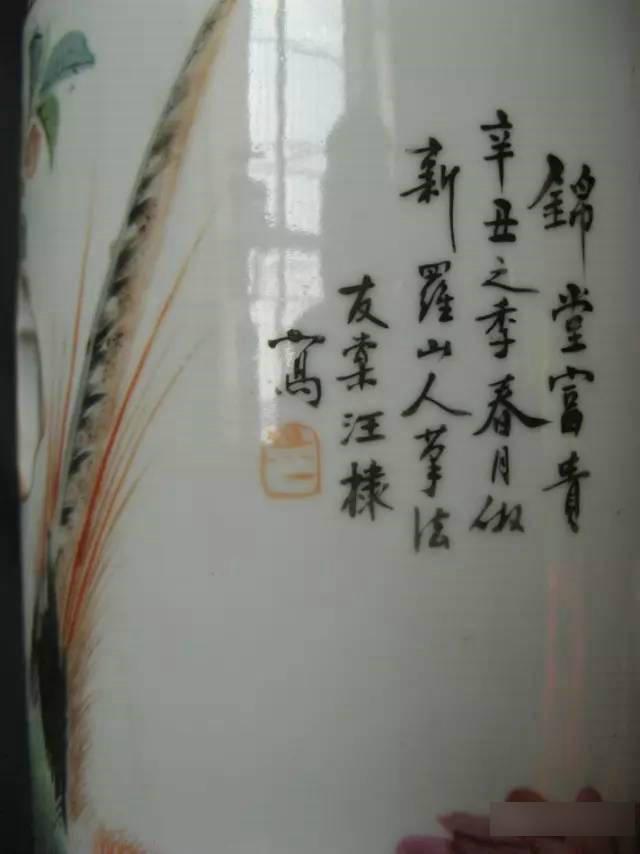 錦堂富貴
辛丑之季春月倣
新羅山人筆法
友棠汪棣
寫